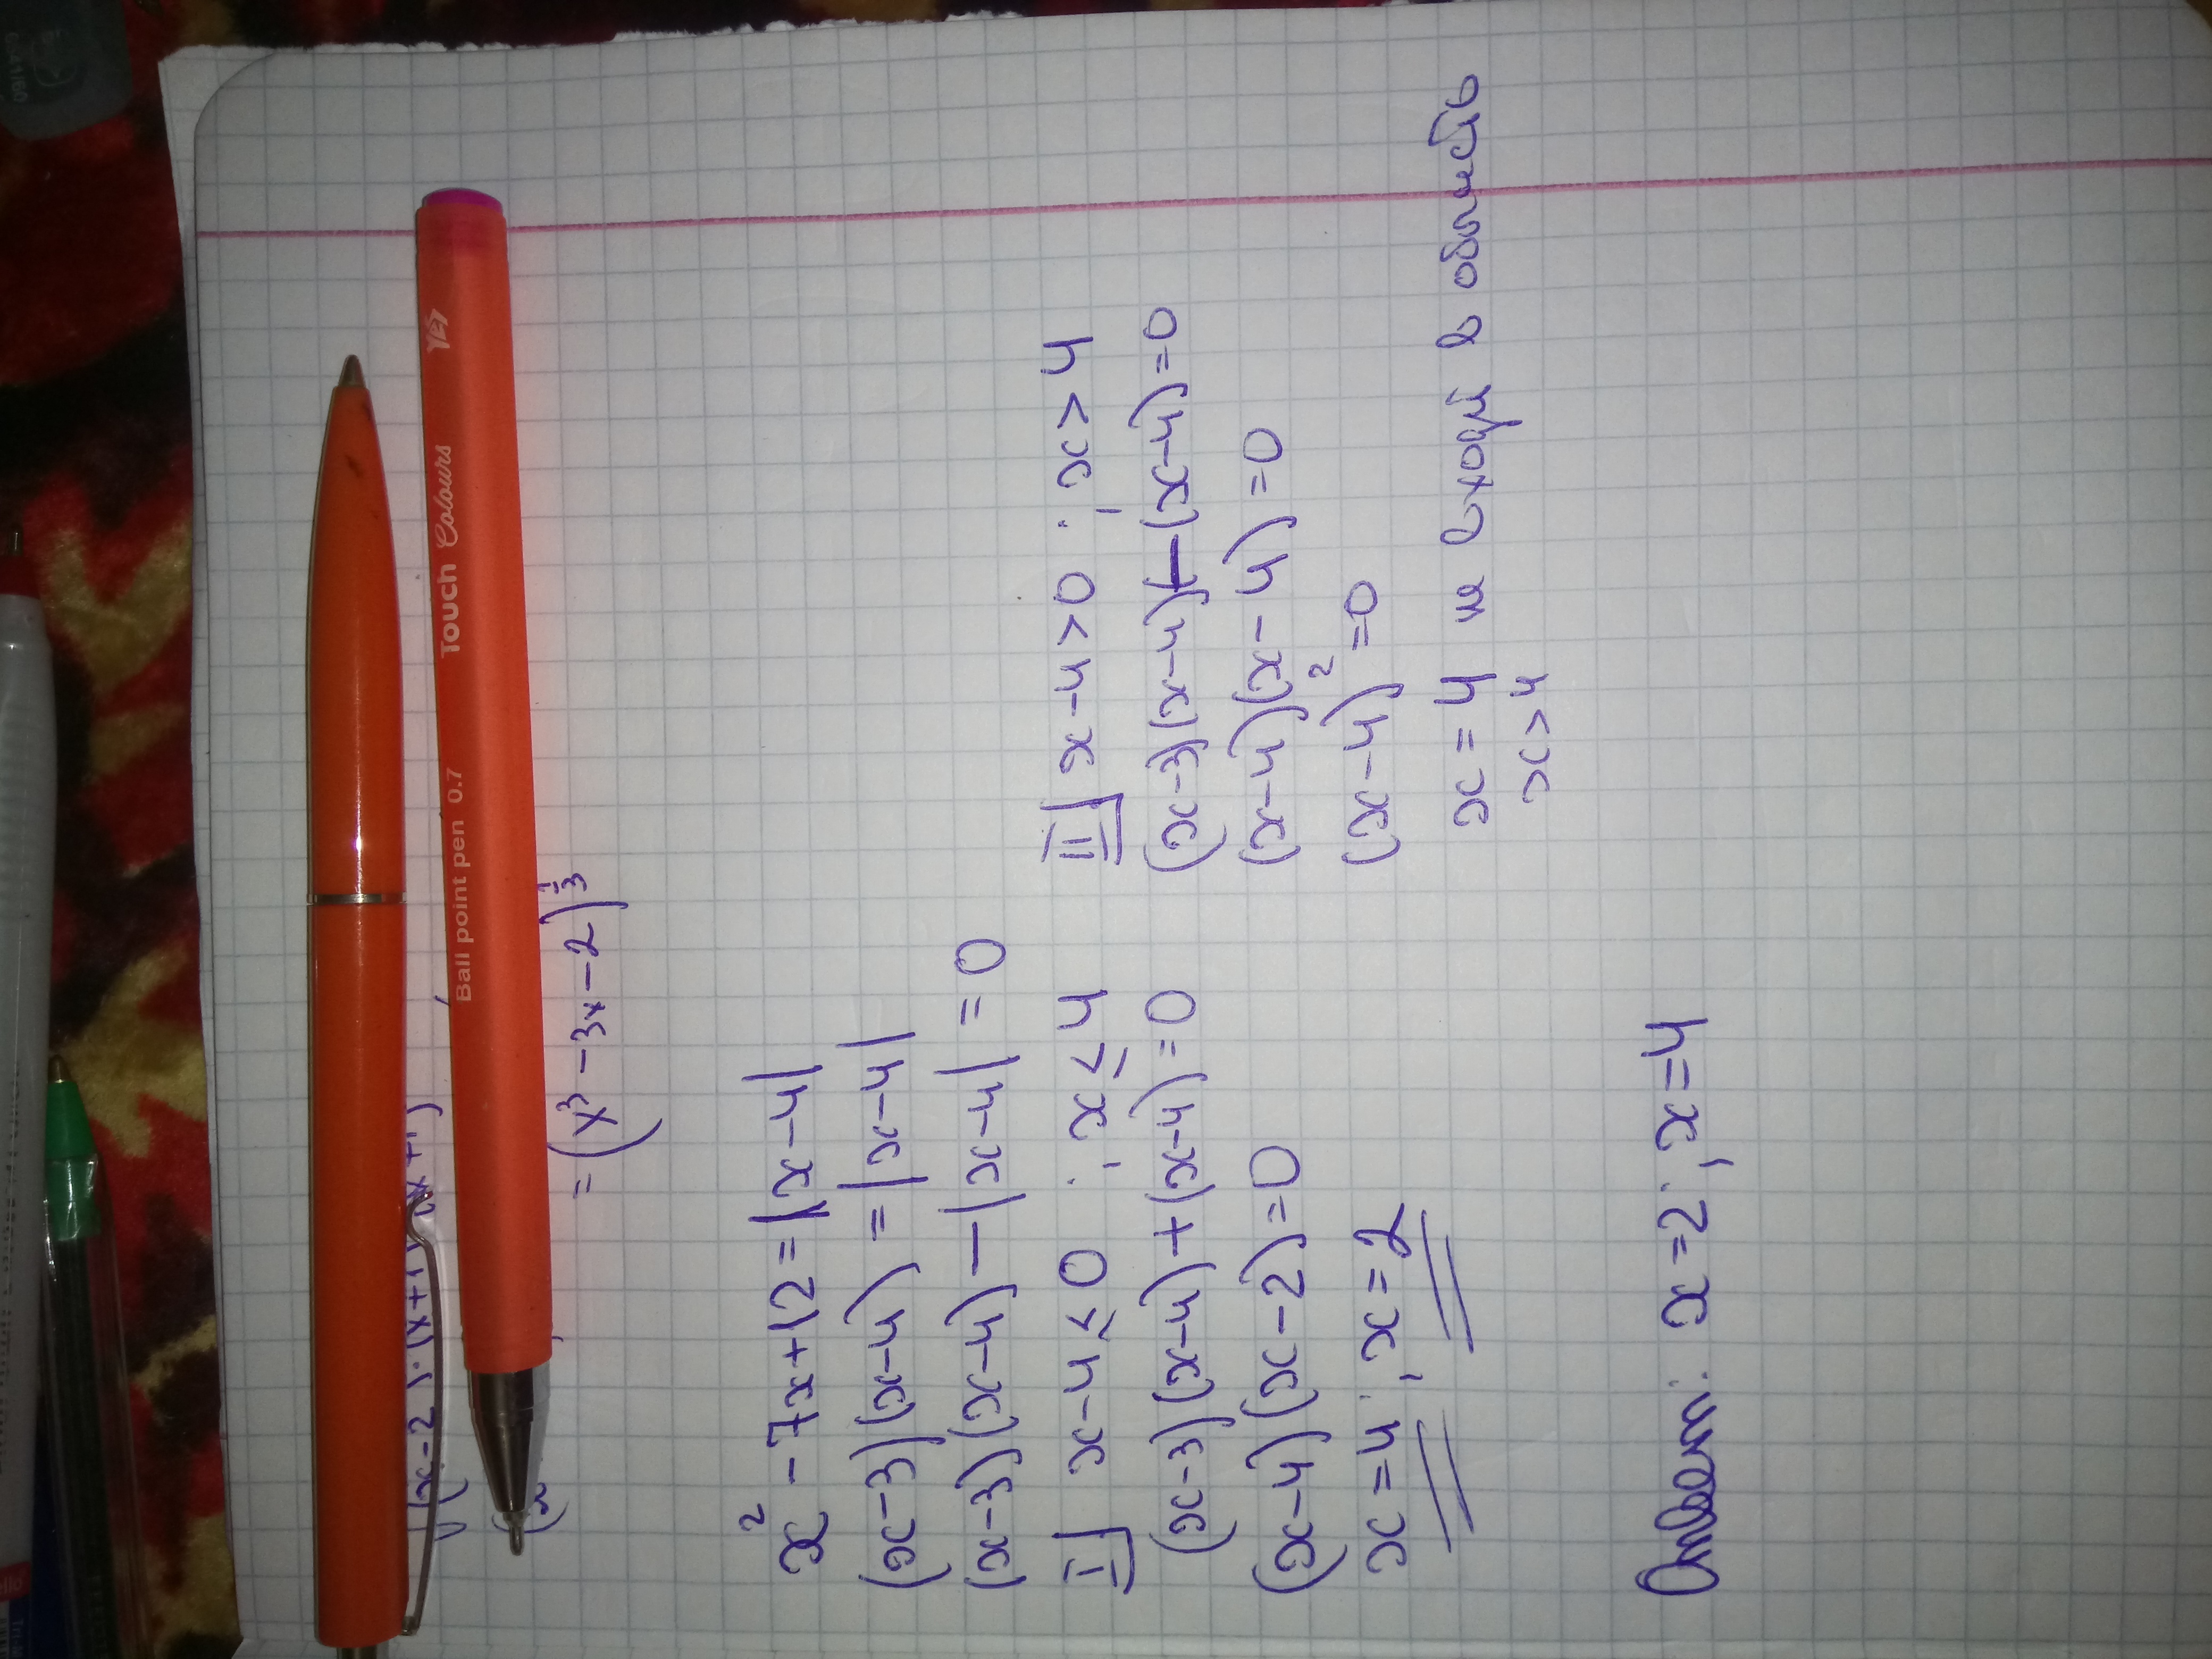 Ball point pen 0.7 Touch Colours YES
= (x³-3x-2)^1/3
x² - 7x + 12 = |x-4|
(x-3)(x-4) = |x-4|
(x-3)(x-4) - |x-4| = 0
I x-4 ≤ 0 ; x ≤ 4
(x-3)(x-4) + (x-4) = 0
(x-4)(x-2) = 0
x = 4 ; x = 2
II x-4 > 0 ; x > 4
(x-3)(x-4) - (x-4) = 0
(x-4)(x-4) = 0
(x-4)² = 0
x = 4 не входит в область
x > 4
Ответ: x = 2 ; x = 4